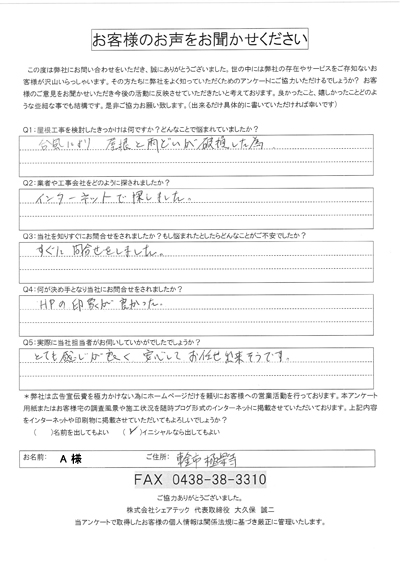 お客様のお声をお聞かせください
この度は弊社にお問い合わせをいただき、誠にありがとうございました。世の中には弊社の存在やサービスをご存知ないお
客様が沢山いらっしゃいます。その方たちに弊社をよく知っていただくためのアンケートにご協力いただけるでしょうか？ お客
様のご意見をお聞かせいただき今後の活動に反映させていただきたいと考えております。良かったこと、嬉しかったことどのよ
うな些細な事でも結構です。是非ご協力お願い致します。（出来るだけ具体的に書いていただければ幸いです）
Q1：屋根工事を検討したきっかけは何ですか？どんなことで悩まれていましたか？
台風により 屋根と雨どいが破損した為
Q2：業者や工事会社をどのように探されましたか？
インターネットで探しました。
Q3：当社を知りすぐにお問合せをされましたか？もし悩まれたとしたらどんなことがご不安でしたか？
すぐに問合せをしました。
Q4：何が決め手となり当社にお問合せをされましたか？
HPの印象が良かった。
Q5：実際に当社担当者がお伺いしていかがでしたでしょうか？
とても感じが良く 安心してお任せ出来そうです。
＊弊社は広告宣伝費を極力かけない為にホームページだけを頼りにお客様への営業活動を行っております。本アンケート
用紙またはお客様宅の調査風景や施工状況を随時ブログ形式のインターネットに掲載させていただいております。上記内容
をインターネットや印刷物に掲載させていただいてもよろしいでしょうか？
（ ）名前を出してもよい （✓）イニシャルなら出してもよい
お名前： A 様 ご住所：
FAX 0438-38-3310
ご協力ありがとうございました。
株式会社シェアテック 代表取締役 大久保 誠二
当アンケートで取得したお客様の個人情報は関係法規に基づき厳正に管理いたします。